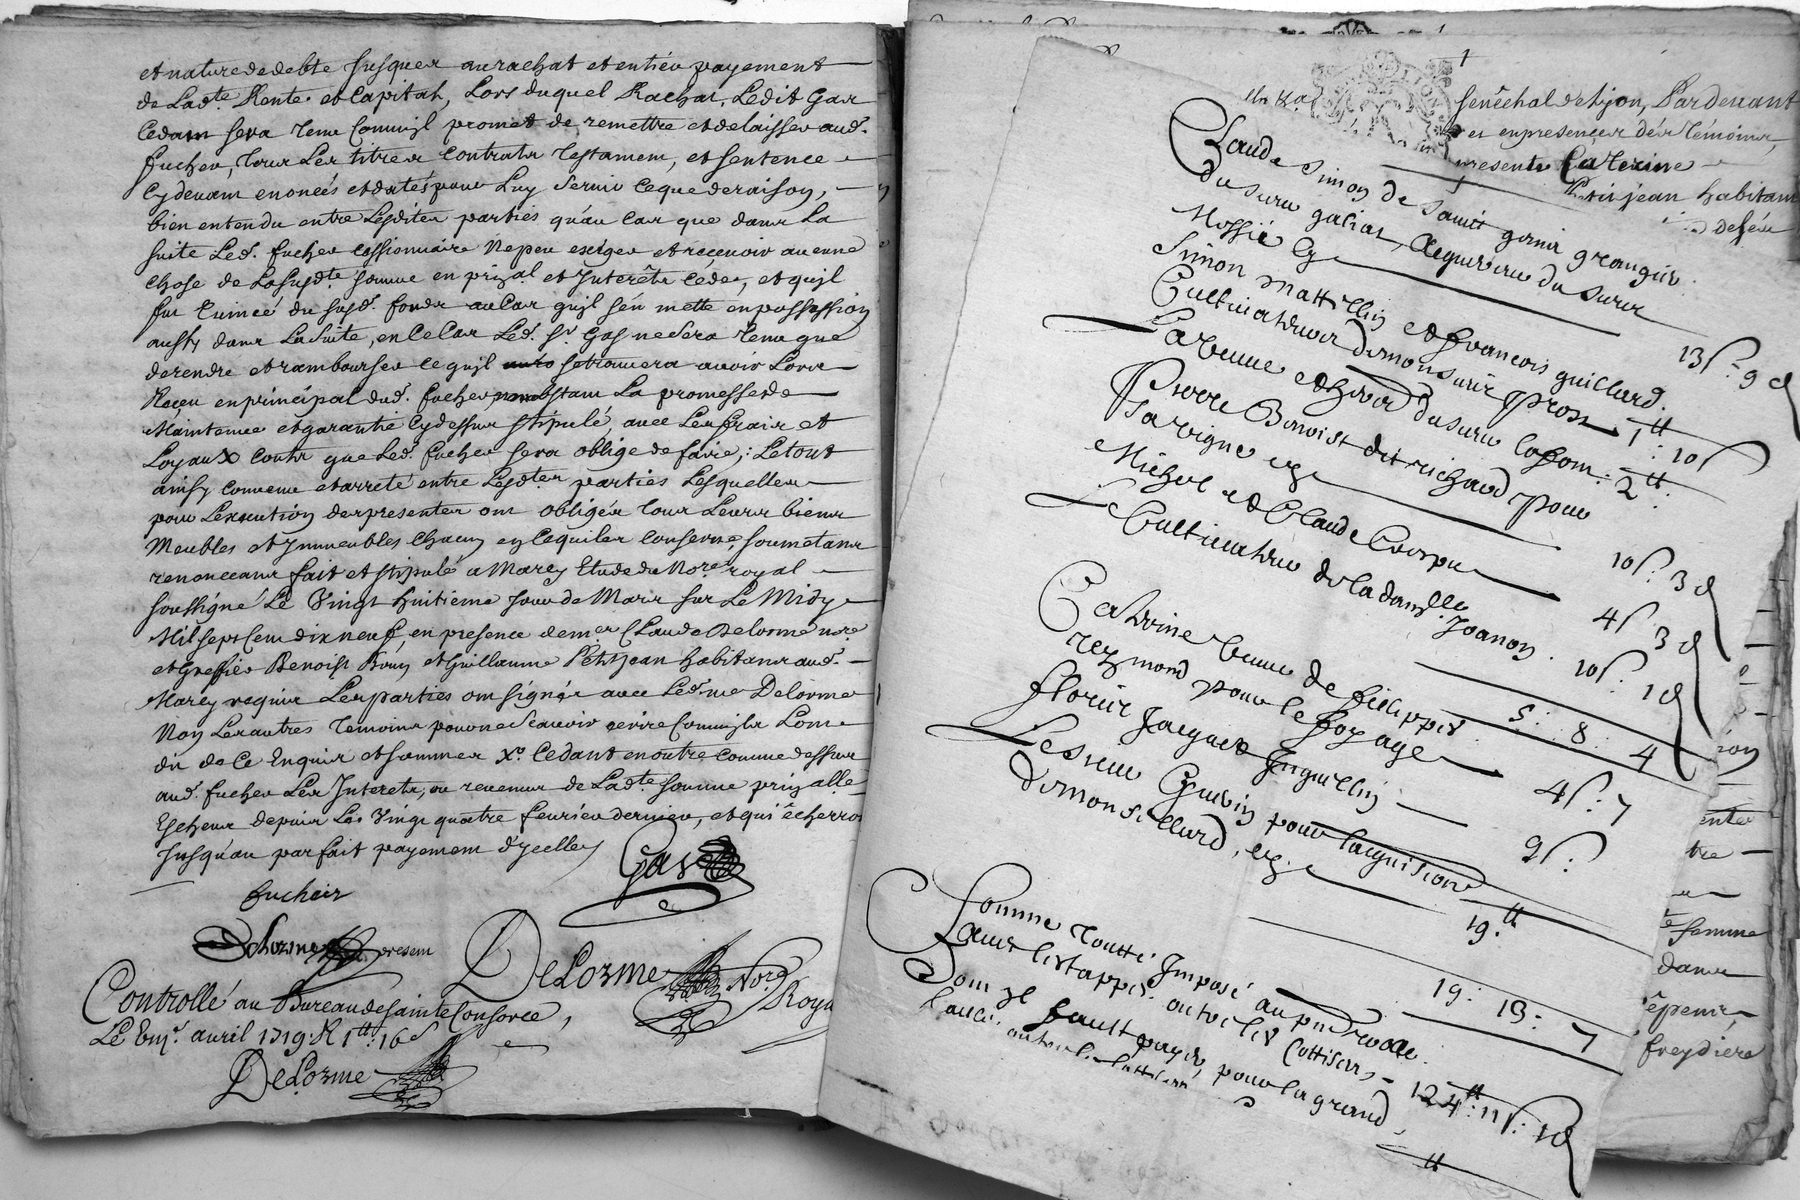 et nature de debte Jusques au rachat et entier payement
de Lad.te Rente et Capital, Lors duquel Rachat, Ledit Gas
Cedant sera Tenu Comm'il promet de remettre et delaisser aud.
fucher, Tous Les titres Contrats Testament, et sentence
Cydevant enoncés et datés pour Luy servir ce que de raison,
bien entendu entre Lesdites parties qu'au Cas que dans La
suite Led. fucher cessionnaire ne peu exiger et recevoir aucune
chose de La susd.te somme en prizal et Interêts cédes, et quil
fut Evincé du susd. fonds au Cas quil s'en mette en possession
aussy dans La suite, en ce Cas Led. Sr Gas ne sera Tenu que
de rendre et rambourser ce quil se trouvera avoir Lors
Reçeu en principal dud. fucher, nonobstant La promesse de
Maintenue et garantie Cy dessus stipulé, avec Les frais et
Loyaux Couts que Led. fucher sera obligé de faire; Le tout
ainsy convenu et arreté entre Lesd.tes parties Lesquelles
pour L'exécution des presentes ont obligés Tous Leurs biens
Meubles et Immeubles Chacun en ce qui les Conserne, soumetans
renonceans fait et stipulé a Marcy Etude du No.re royal
soussigné Le Vingt huitieme Jour de Mars sur Le Midy
Mil sept Cent dix neuf, en presence de me Claude Delorme no.re
et Greffier Benoist Brun et Guillaume Petitjean habitans aud.
Marcy requis Les parties ont signés avec Led. me Delorme
Non Les autres Temoins pour ne scavoir ecrire Comm'ils L'ont
dit de Ce Enquis et sommes X.o Cedant en outre comme dessus
aud. fucher Les Interets, ou revenus de Lad.te somme prizalle
Escheus depuis Le Vingt quatre fevrier dernier, et qui êcherront
Jusqu'au parfait payement d'ycelle
Gas
fucher
Delorme present
DeLorme No.re Royal
Controllé au Bureau de Sainte Consorce,
Le avril 1719. R 1tt: 16 d
DeLorme
Senêchal de Lyon, Pardevant
et en presences dés Témoins,
presente Caterine
Petit jean habitant
Claude Simon de Saint genis grangier
du sieur galiat, acquereur du sieur
Mossié Cy 13 s: 9 d
Simon matthllin et francois guillard
Cultivateurs de monsieur Prost 1tt: 10 s
La veuve et hoirs du sieur lafont: 2tt:
Pierre Benoist dit richard pour
sa vigne cy 10 s: 3 d
Michel et Claude Crespu 4 s 3 d
Cultivateur de la dam.lle Joanon 10 s: 1 d
5: 8: 4
Catherine veuve de philippes
reymond pour le foyage 4 s: 7
floris Jacquet Inguillin 9 s:
Le sieur Guerin pour lacquisition
de mon sr Ullard, cy. 19.tt
19: 13: 7
Somme Toutte Imposé au pnt roolle
sans lestappes autres Cottisés 124tt: 11 s: 1 d
Dont Il fault payer, pour la grand
tt
femme
dans
freydiere